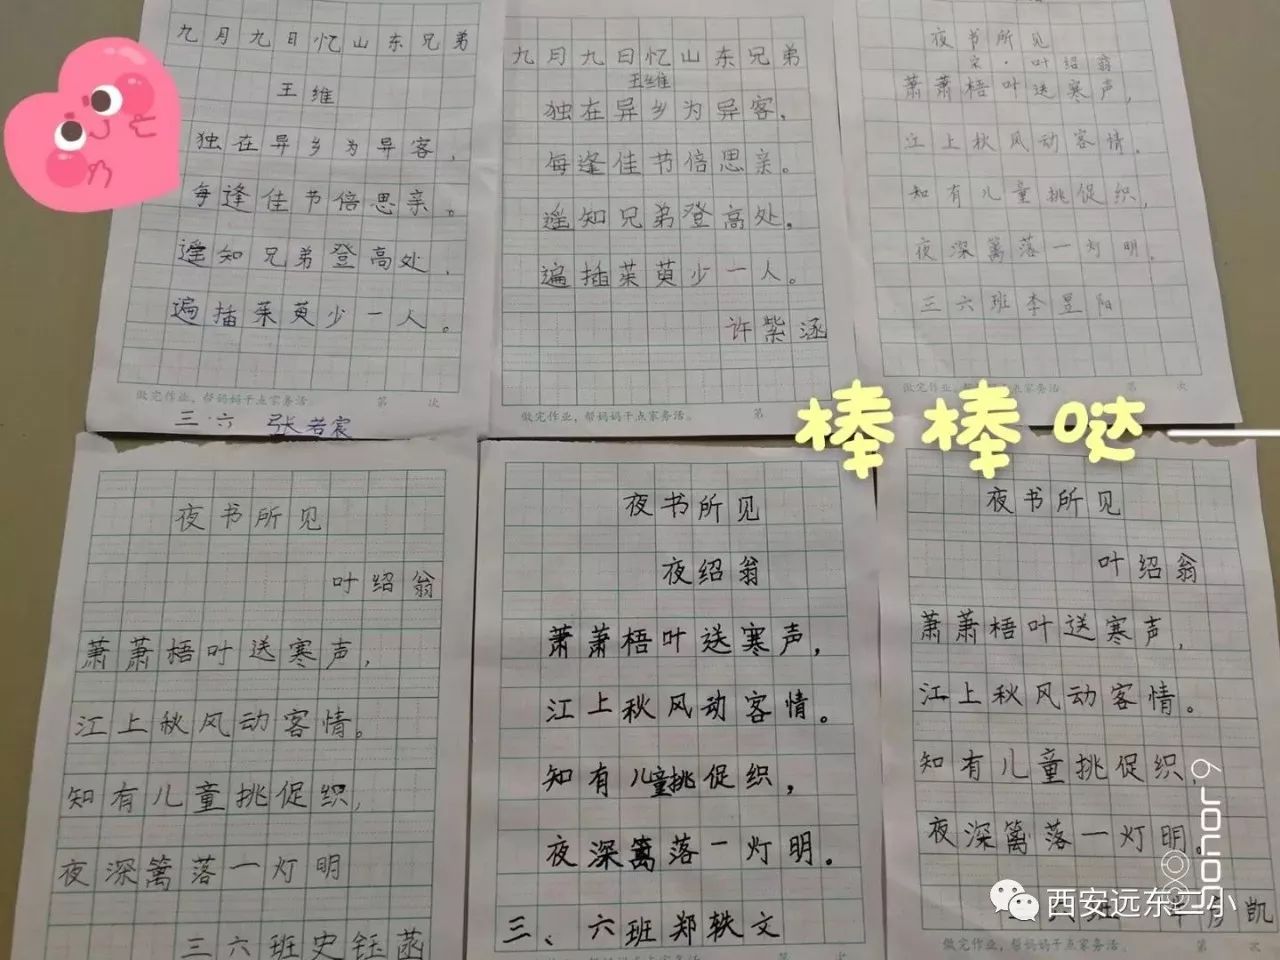 九月九日忆山东兄弟
王维
独在异乡为异客，
每逢佳节倍思亲。
遥知兄弟登高处，
遍插茱萸少一人。
做完作业，帮妈妈干点家务活。 第 次
三.六 张若宸
九月九日忆山东兄弟
王维
独在异乡为异客，
每逢佳节倍思亲。
遥知兄弟登高处，
遍插茱萸少一人。
许紫涵
做完作业，帮妈妈干点家务活。 第
夜书所见
宋·叶绍翁
萧萧梧叶送寒声，
江上秋风动客情。
知有儿童挑促织，
夜深篱落一灯明。
三六班李昱阳
做完作业，帮妈妈干点家务活。 第 次
棒棒哒
夜书所见
叶绍翁
萧萧梧叶送寒声，
江上秋风动客情。
知有儿童挑促织，
夜深篱落一灯明
三六班史钰菡
夜书所见
夜绍翁
萧萧梧叶送寒声，
江上秋风动客情。
知有儿童挑促织，
夜深篱落一灯明。
三、六班郑轶文
夜书所见
叶绍翁
萧萧梧叶送寒声，
江上秋风动客情。
知有儿童挑促织，
夜深篱落一灯明。
凯
做完作业，帮妈妈干点家务活。 第 次
honor 9
西安远东二小